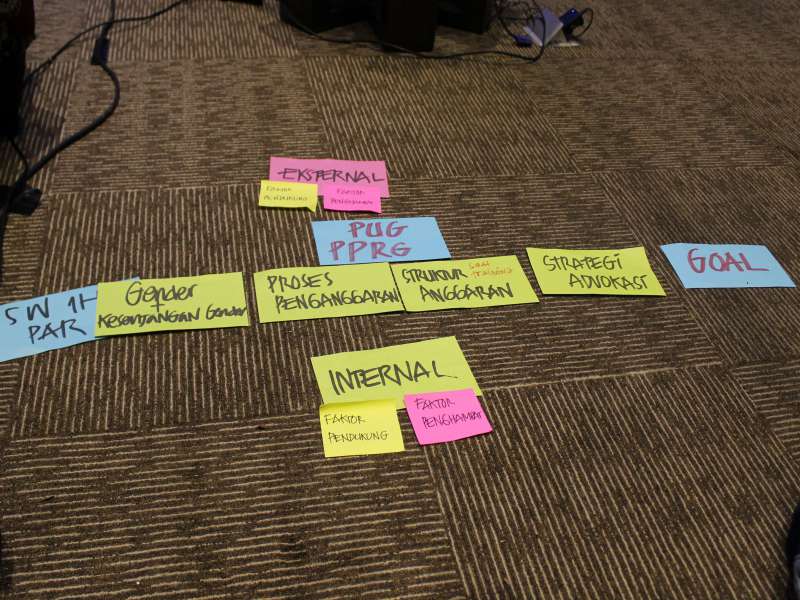 EKSTERNAL
FAKTOR
PENDUKUNG
FAKTOR
PENGHAMBAT
PUG
PPRG
5W 1H
PAR
Gender
+
Kesenjangan Gender
PROSES
PENGANGGARAN
STRUKTUR
ANGGARAN
STRATEGI
ADVOKASI
GOAL
INTERNAL
FAKTOR
PENDUKUNG
FAKTOR
PENGHAMBAT